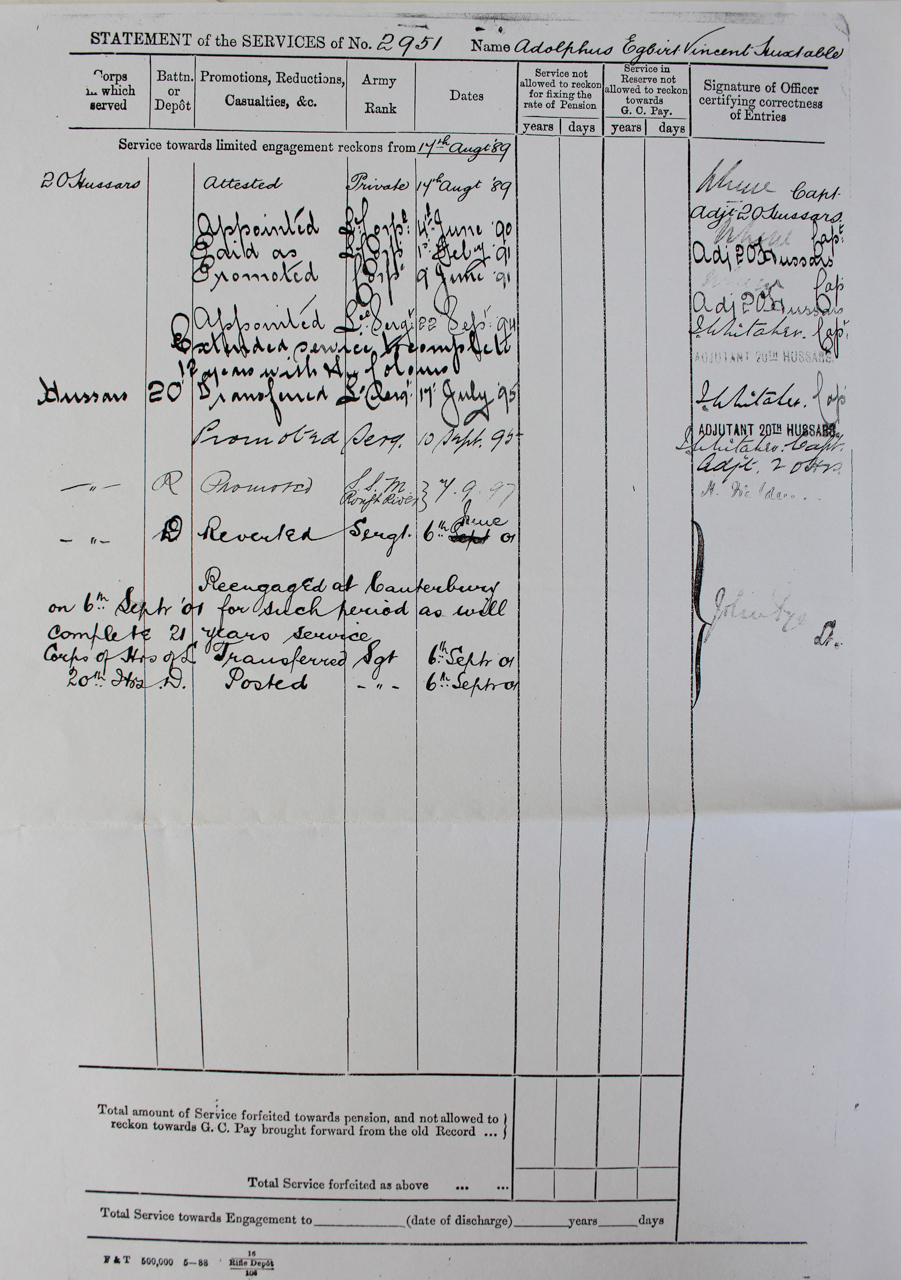 STATEMENT of the SERVICES of No. 2951 Name Adolphus Egbirt Vincent Huxtable
Corps in which served Battn. or Depôt Promotions, Reductions, Casualties, &c. Army Rank Dates Service not allowed to reckon for fixing the rate of Pension Service in Reserve not allowed to reckon towards G. C. Pay. Signature of Officer certifying correctness of Entries
years days years days
Service towards limited engagement reckons from 17th Augt '89
20 Hussars Attested Private 17th Augt '89 Capt
Adjt 20 Hussars.
Appointed L. Corpl. 4th June '90 Capt.
Paid as L. Corpl. 1st Feby '91 Adj 20 Hussars
Promoted Corpl. 9 June '91 Cap
Adj 20 Hussars
Appointed Lce Sergt 22 Sept. '94 J. Whitaker. Capt
Extended service to complete ADJUTANT 20TH HUSSARS.
12 years with the Colours
Hussars 20 Transferred L. Serg. 17 July '95 J. Whitaker. Cap
ADJUTANT 20TH HUSSARS.
Promoted Serg. 10 Sept. 95 J. Whitaker. Capt.
Adjt. 20 Hrs.
— " — R Promoted S. S. M. Rough Rider } 7. 9. 97
— " — D Reverted Sergt. 6th June 01
Reengaged at Canterbury
on 6th Septr '01 for such period as will
complete 21 years service
Corps of Hrs of L Transferred Sgt 6th Septr 01
20th Hrs D. Posted — " — 6th Septr 01
Lt.
Total amount of Service forfeited towards pension, and not allowed to }
reckon towards G. C. Pay brought forward from the old Record ... }
Total Service forfeited as above ... ...
Total Service towards Engagement to (date of discharge) years days
F & T 500,000 5—88 16
Rifle Depôt
106